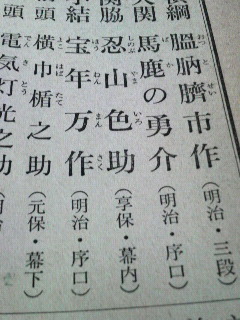 横綱 膃肭臍市作（明治・三段
大関 馬鹿の勇介（明治・序口）
関脇 忍山色助（享保・幕内）
小結 宝年万作（明治・序口）
前頭 横巾楯之助（元保・幕下）
頭 電気灯光之助（明治